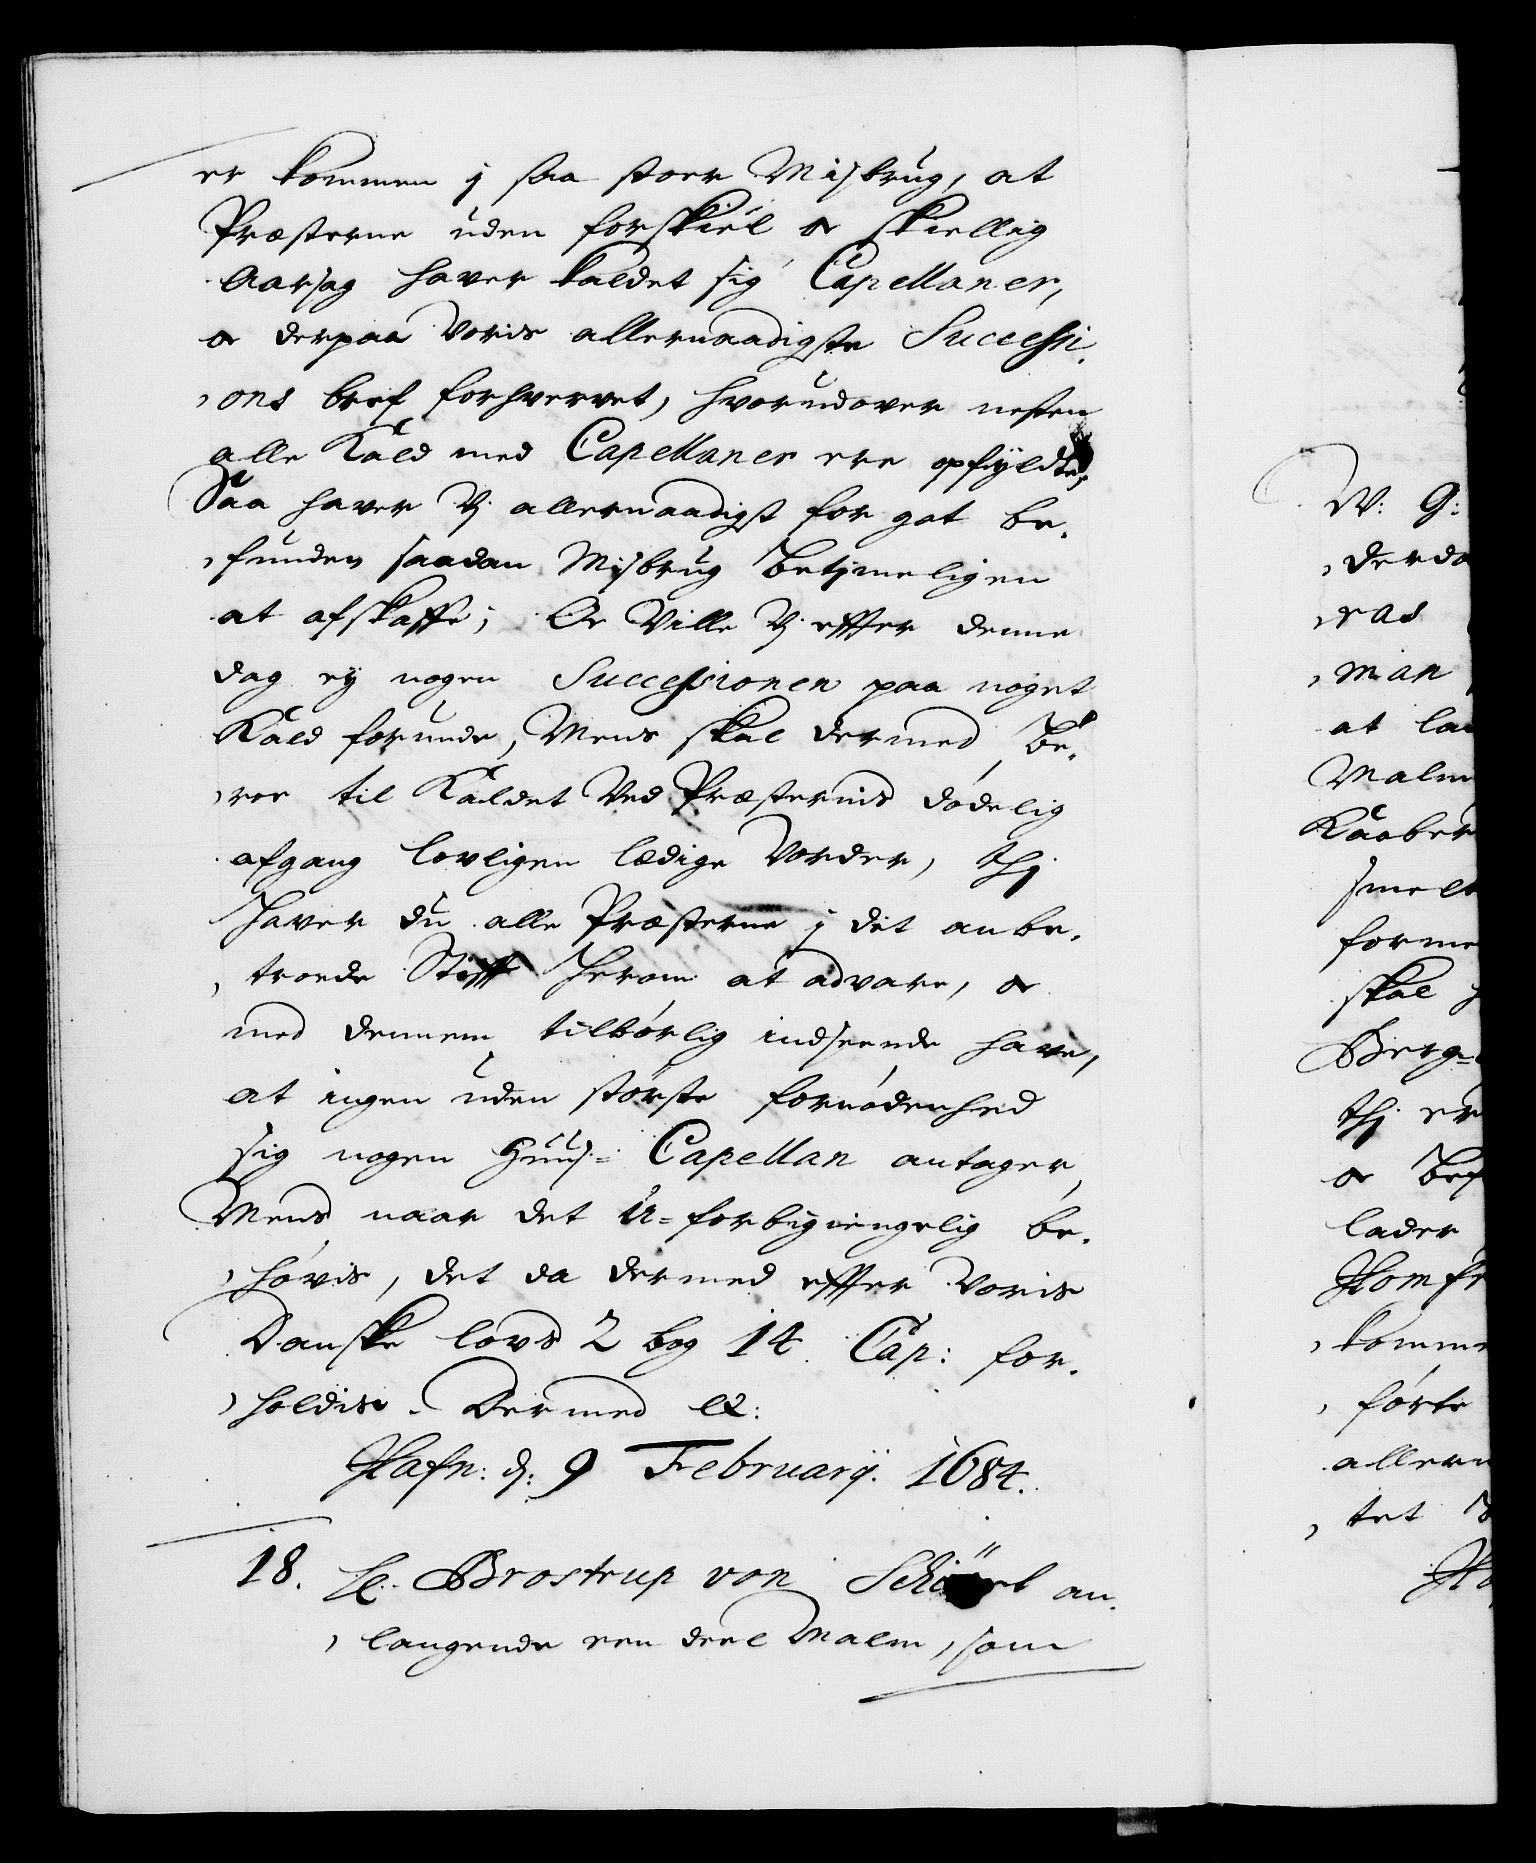 er kommen j saa stoer Misbrug, at
Præsterne uden forskiel oc skiellig
Aarsag hafver kaldet sig Capellaner,
oc derpaa Voris allernaadigste Successi-
ons bref forhvervet, hvorudover nesten
alle Kald med Capellaner ere opfyldte,
Saa hafver Vj allernaadigst for got be-
funden saadan Misbrug betimeligen
at afskaffe; Oc Ville Vj effter denne
dag ey nogen Successionen paa noget
Kald forunde, Mens skal dermed be-
roe til Kaldet Ved Præsternis dødelig
afgang lovligen lædige Vorder, thj
hafver du alle Præsterne j dit anbe-
troede Stifft herom at advare, oc
med dennem tilbørlig indseende hafve,
at ingen uden største fornødenhed
sig nogen Huus-Capellan antager,
Mens naar det U-forbigiengelig be-
høvis, det da dermed effter Voris
Danske lovs 2 bog 14 Cap: for-
holdis. Dermed etc:
Hafn: d: 9 Februarij. 1684.
18. Brostrup von an-
langende een deel Malm, som
W: G:
derda
ras
man
at lad
Malm
Kaaber
smelt
forme
skal
Berg-
thj er
oc bef
lader
Homf
komm
førte
allern
tet